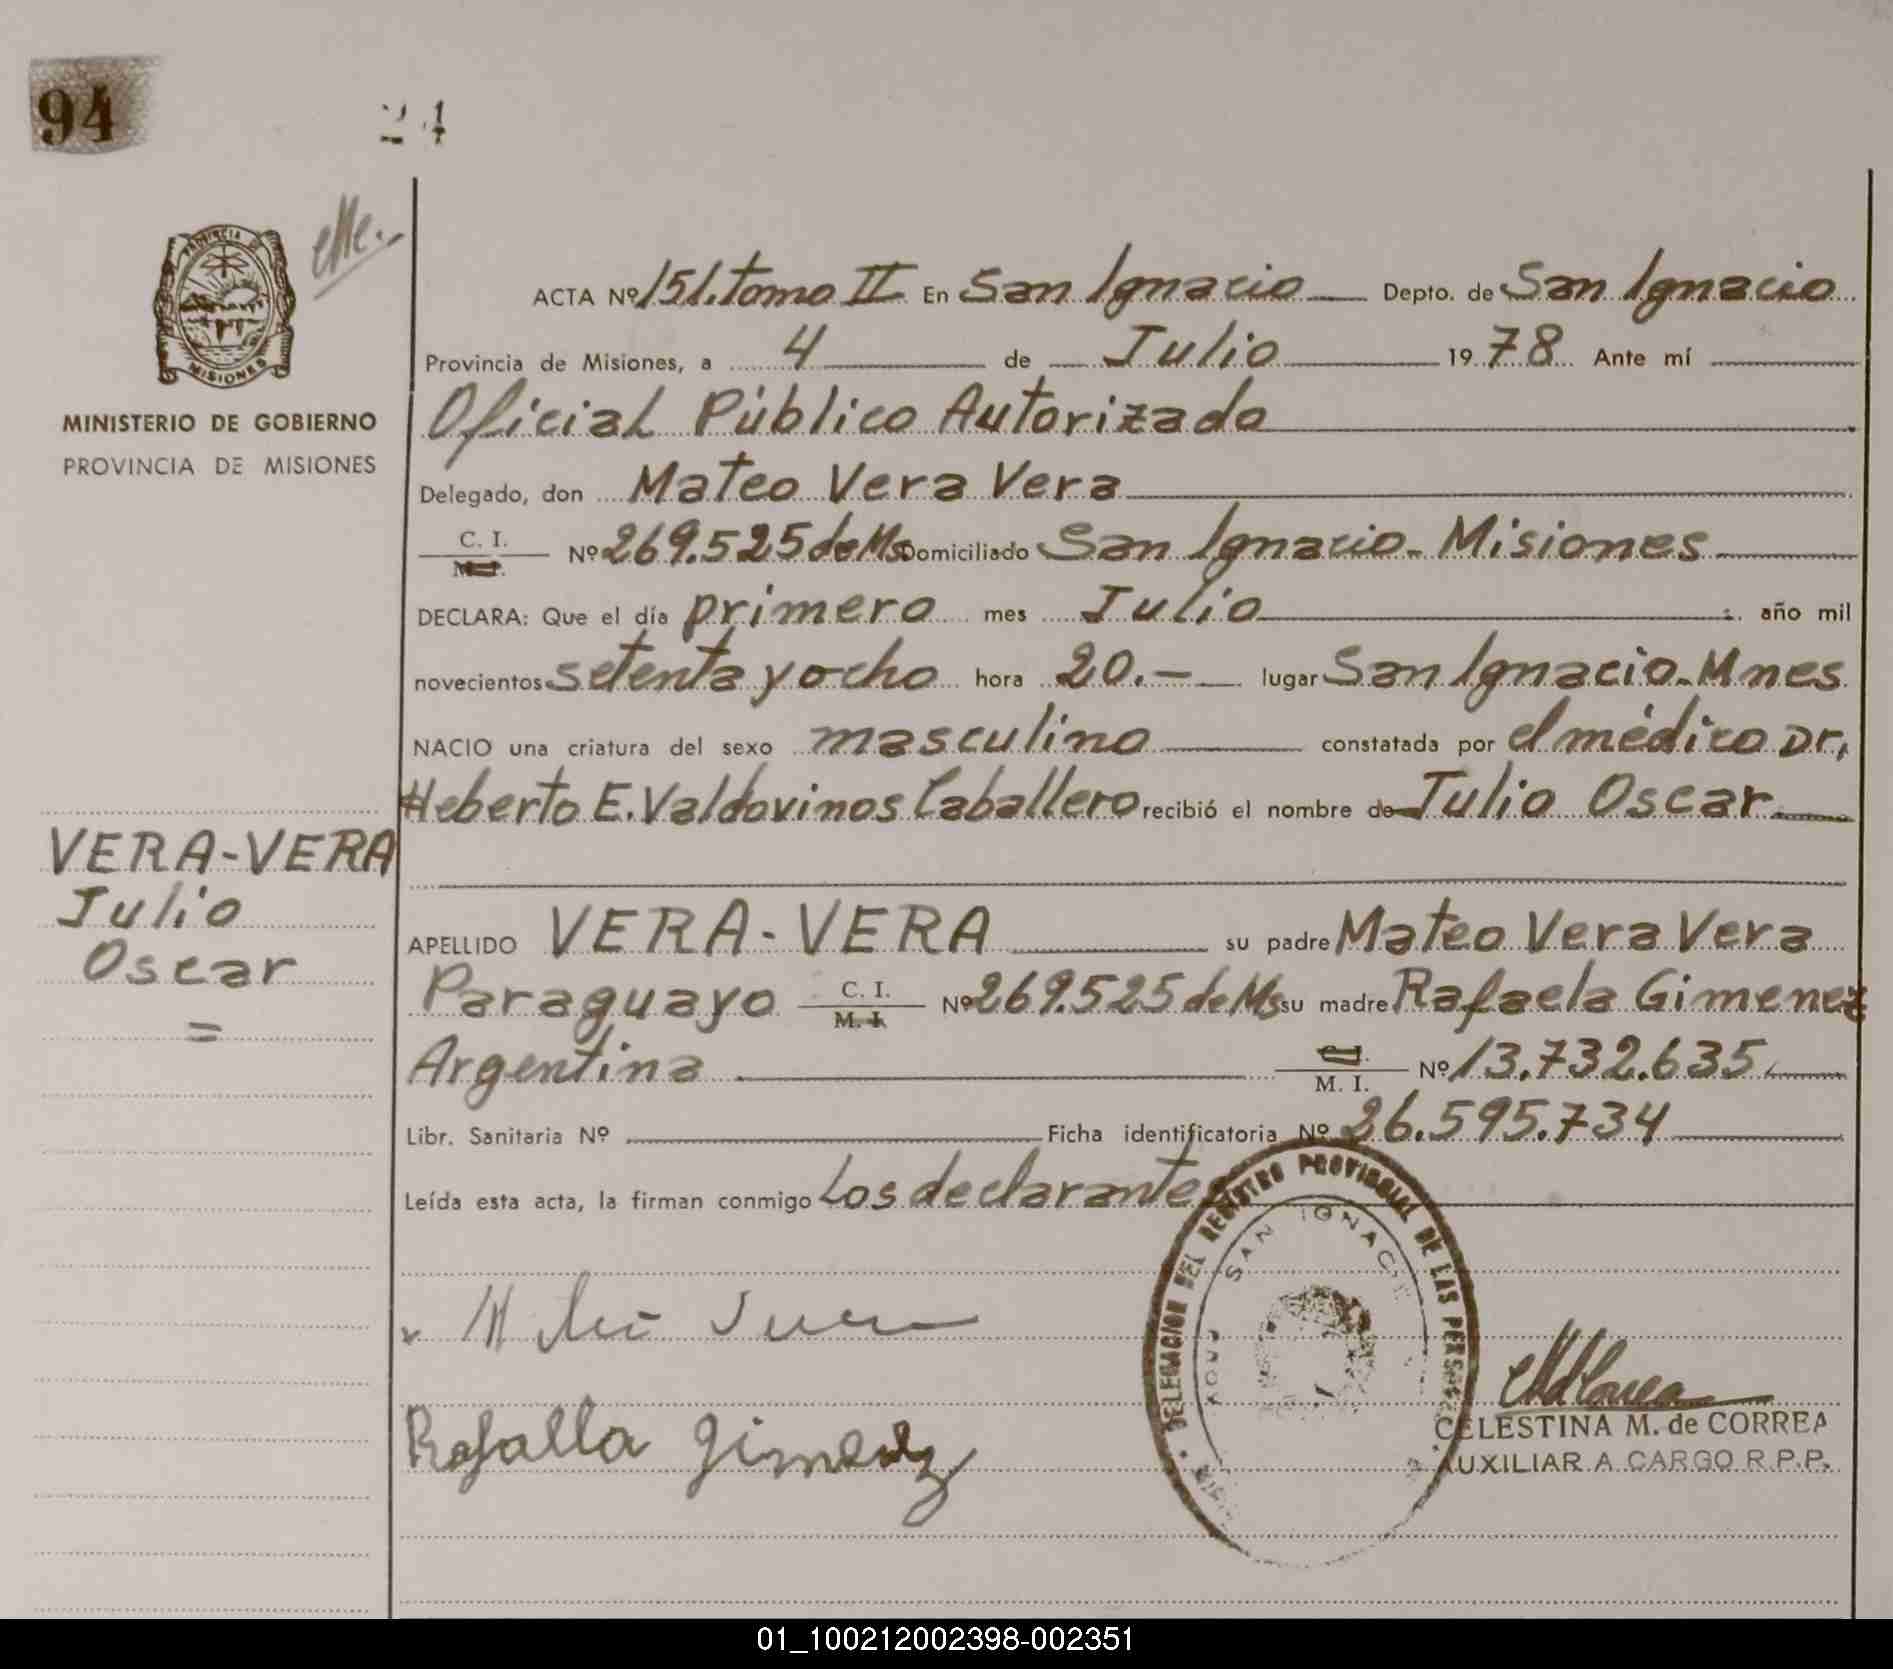 94
24
PROVINCIA DE
MISIONES
MINISTERIO DE GOBIERNO
PROVINCIA DE MISIONES
VERA-VERA
Julio
Oscar
=
ACTA Nº 151. tomo II En San Ignacio Depto. de San Ignacio
Provincia de Misiones, a 4 de Julio 1978 Ante mí
Oficial Público Autorizado
Delegado, don Mateo Vera Vera
C. I.
M. I. Nº 269.525 de Ms Domiciliado San Ignacio - Misiones
DECLARA: Que el día primero mes Julio año mil
novecientos setenta y ocho hora 20.- lugar San Ignacio - Mnes
NACIO una criatura del sexo masculino constatada por el médico Dr.
Heberto E. Valdovinos Caballero recibió el nombre de Julio Oscar
APELLIDO VERA-VERA su padre Mateo Vera Vera
Paraguayo C. I. M. I. Nº 269.525 de Ms su madre Rafaela Gimenez
Argentina M. I. Nº 13.732.635
Libr. Sanitaria Nº Ficha identificatoria Nº 26.595.734
Leída esta acta, la firman conmigo Los declarantes
DELEGACION DEL REGISTRO PROVINCIAL DE LAS PERSONAS
SAN IGNACIO
Rafalla Gimenez
CELESTINA M. de CORREA
AUXILIAR A CARGO R.P.P.
01_100212002398-002351